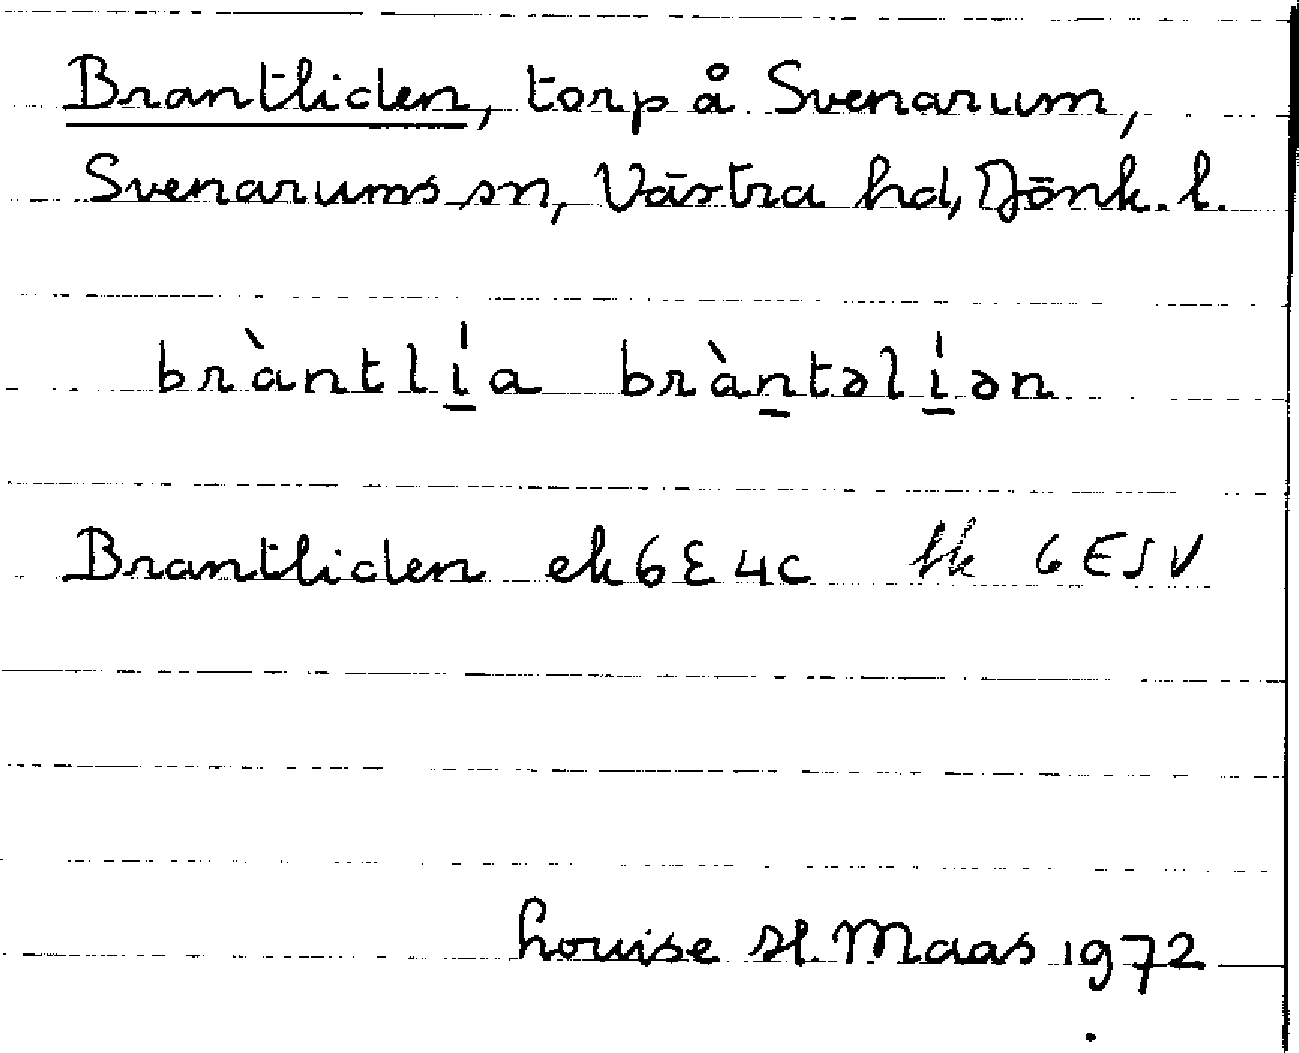 Brantliden, torp å Svenarum,
Svenarums sn, Västra hd, Jönk. l.
bràntlí̱a bràṉtəlí̱ən
Brantliden ek 6E4c tk 6E SV
Louise H. Maas 1972